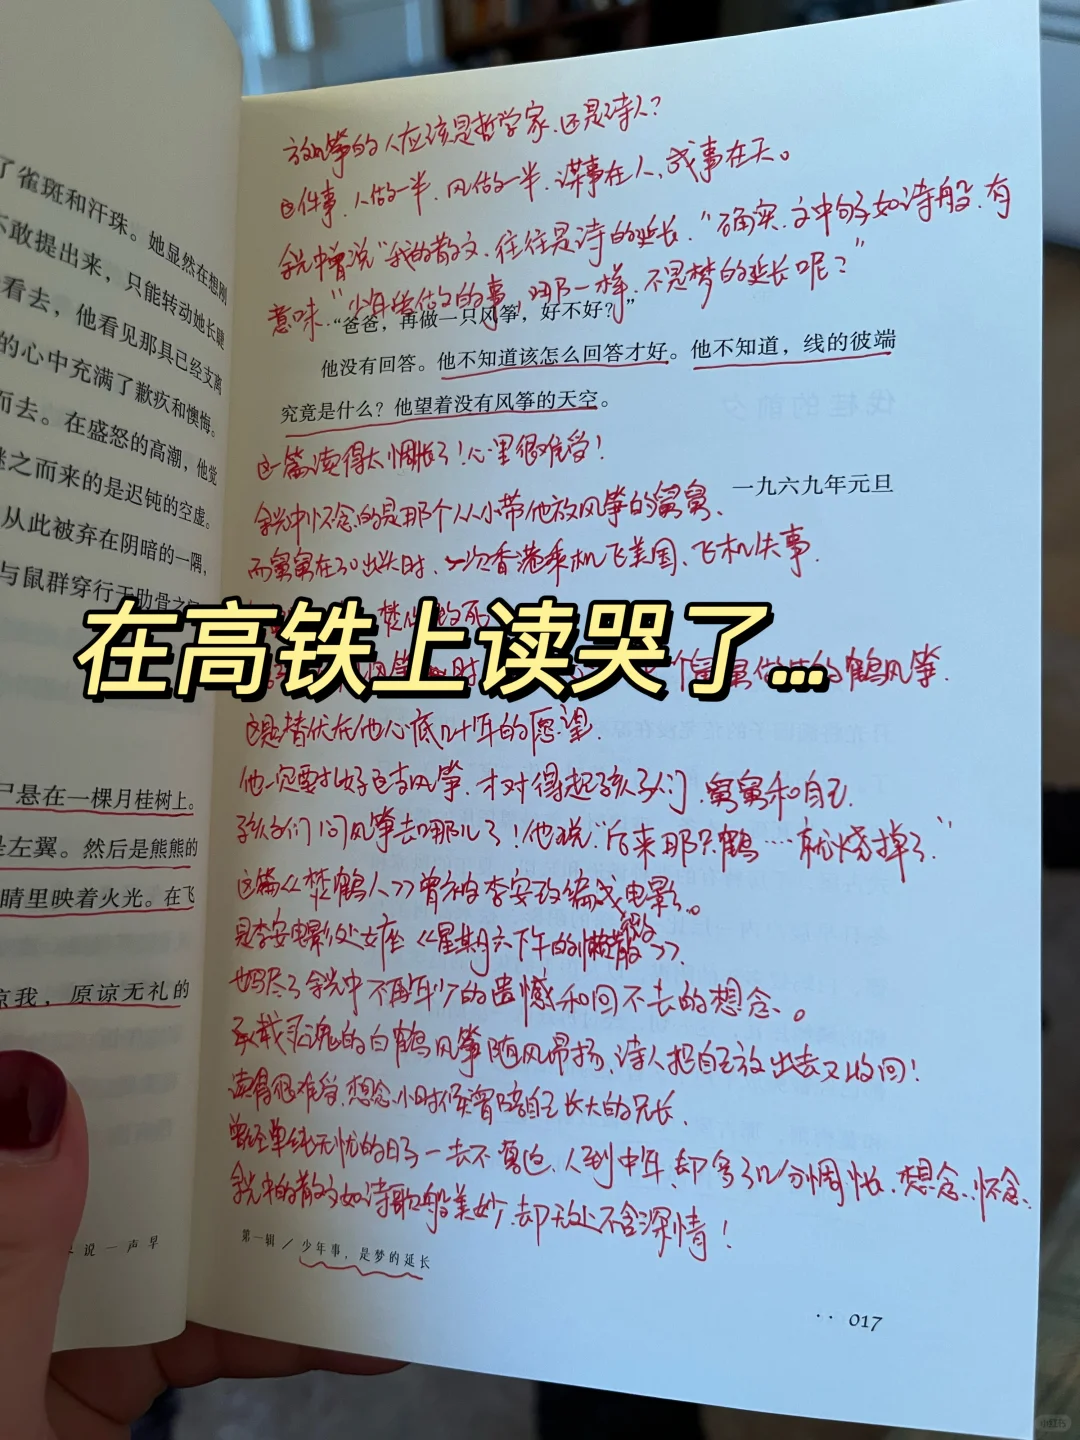 了雀斑和汗珠。她显然在想刚
不敢提出来，只能转动她长睫
看去，他看见那具已经支离
的心中充满了歉疚和懊悔。
而去。在盛怒的高潮，他觉
之而来的是迟钝的空虚。
从此被弃在阴暗的一隅，
与鼠群穿行于肋骨之
尸悬在一棵月桂树上。
是左翼。然后是熊熊的
睛里映着火光。在飞
原我，原谅无礼的
说一声早
放风筝的人应该是哲学家、还是诗人？
这件事、人做一半、风做一半、谋事在人、成事在天。
余光中曾说“我的散文、往往是诗的延长、”确实、文中句子如诗般、有
意味“少年时做的事，哪一样、不是梦的延长呢？”
“爸爸，再做一只风筝，好不好？”
他没有回答。他不知道该怎么回答才好。他不知道，线的彼端
究竟是什么？他望着没有风筝的天空。
这一篇读得太惆怅了！心里很难受！
一九六九年元旦
余光中怀念的是那个从小带他放风筝的舅舅、
而舅舅在30出头时、一次香港乘机飞美国、飞机失事.
在高铁上读哭了...
个舅舅做过的鹤风筝.
这是潜伏在他心底几十年的愿望.
他一定要扎好这支风筝、才对得起孩子们、舅舅和自己.
孩子们问风筝去哪儿了！他说“后来那只鹤……就烧掉了”
这篇《焚鹤人》曾被李安改编成电影。
是李安电影处女座《星期六下午的懒散》、
写尽了余光中不再年少的遗憾和回不去的想念、。
承载灵魂的白鹤风筝随风昂扬、诗人把自己放出去又收回！
读得很难受、想念小时候曾陪自己长大的兄长、
曾经单纯无忧的日子一去不复返、人到中年、却多了几分惆怅、想念、怀念、
余光中的散文如诗歌般美妙、却无处不含深情！
第一辑／少年事，是梦的延长
·· 017
小红书